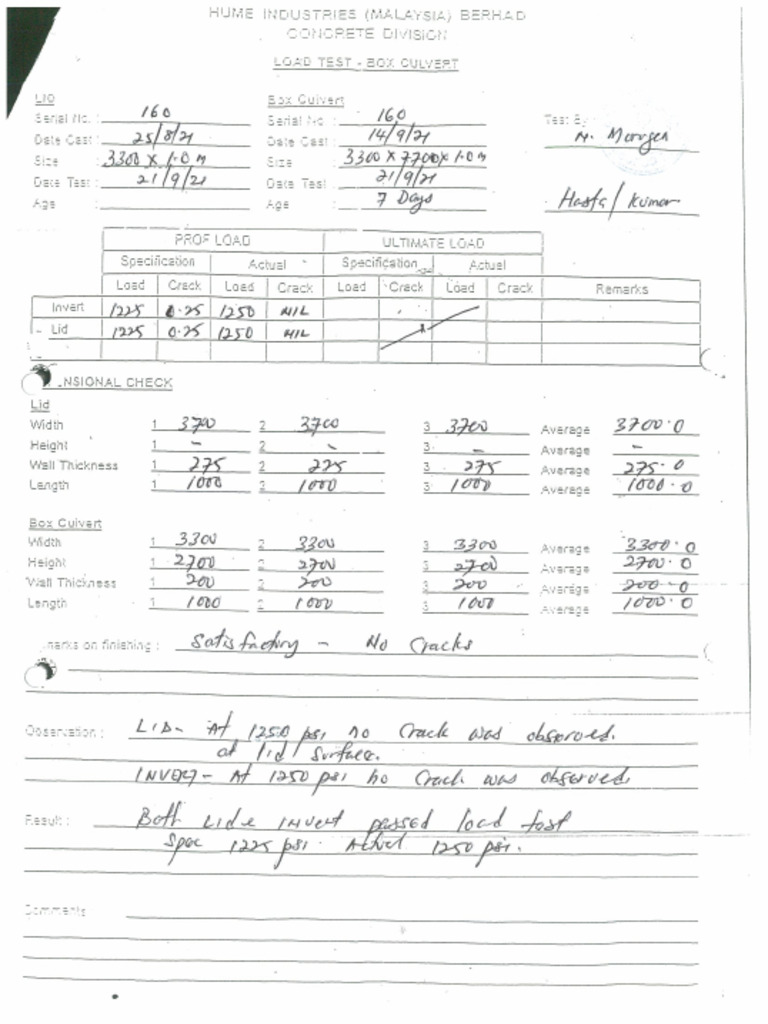 HUME INDUSTRIES (MALAYSIA) BERHAD
CONCRETE DIVISION
LOAD TEST - BOX CULVERT
LID Box Culvert
Serial No. : 160 Serial No. : 160 Test By
Date Cast : 25/8/21 Date Cast : 14/9/21
Size : 3300 x 1.0 m Size : 3300 x 2700 x 1.0 m
Date Test : 21/9/21 Date Test : 21/9/21
Age : Age : 7 Days
PROF LOAD ULTIMATE LOAD
Specification Actual Specification Actual
Load Crack Load Crack Load Crack Load Crack Remarks
Invert 1225 0.25 1250 NIL
Lid 1225 0.25 1250 NIL
NSIONAL CHECK
Lid
Width 1 3700 2 3700 3 3700 Average 3700.0
Height 1 - 2 - 3 - Average -
Wall Thickness 1 275 2 275 3 275 Average 275.0
Length 1 1000 2 1000 3 1000 Average 1000.0
Box Culvert
Width 1 3300 2 3300 3 3300 Average 3300.0
Height 1 2700 2 2700 3 2700 Average 2700.0
Wall Thickness 1 200 2 200 3 200 Average 200.0
Length 1 1000 2 1000 3 1000 Average 1000.0
marks on finishing : Satisfactory - No Cracks
Observation : LID - At 1250 psi no Crack was observed.
at lid surface.
INVERT - At 1250 psi no Crack was observed
Result : Both Lid & invert passed load test
Spec 1225 psi. Actual 1250 psi.
Comments